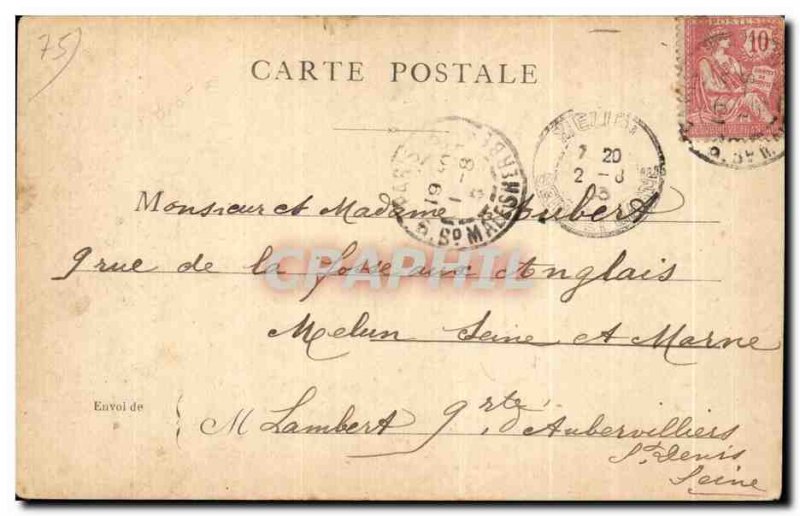 75)
CARTE POSTALE
POSTES
10
MELUN
7 20
2 - 8
PARIS
19
1 - 8
B. Sᵈ MALESHERBES
Monsieur et Madame Aubert
9 rue de la fosse aux Anglais
Melun Seine et Marne
CPAPHIL
Envoi de
M Lambert 9. rte d'Aubervilliers
St Denis
Seine